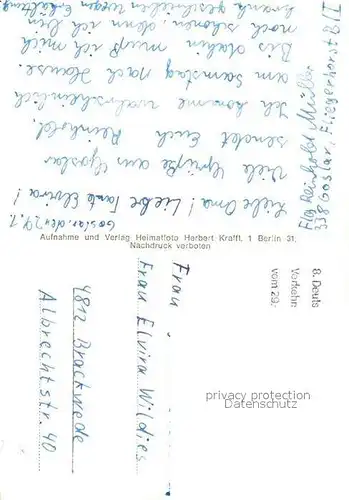 Goslar, den 24.1.
Liebe Oma! Liebe Tante Elvira!
Viele Grüße aus Goslar
sendet Euch Reinhold.
Ich komme wahrscheinlich
am Samstag nach Hause.
Bis dahin muß ich mich
noch schonen, denn ich bin
krank geschrieben wegen Erkältung
Flg Reinhold Müller
338 Goslar, Fliegerhorst 8/I
Aufnahme und Verlag Heimatfoto Herbert Krafft, 1 Berlin 31;
Nachdruck verboten
8. Deuts
Verkehr
vom 29.
Frau
Frau Elvira Wildies
4812 Brackwede
Albrechtstr. 40
privacy protection
Datenschutz